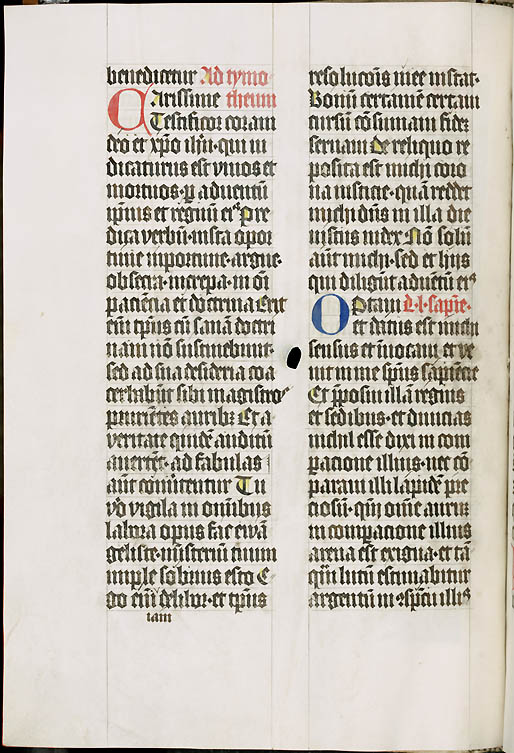 benedicetur Ad tymo
Carissime theum
Testificor coram
deo et xp̄o ih̄u·qui iu
dicaturus est viuos et
mortuos·ꝑ aduentū
ip̄ius et regnū eiꝰ Pre
dica verbū·insta opor
tune inportune·argue·
obsecra·increpa·in oī
paciēcia et doctrina Erit
eī tp̄us cū sanā doctri
nam nō sustinebunt·
sed ad sua desideria coa
ceruabūt sibi magistros
prurientes auribꝫ Et a
veritate quidē auditū
auertēt·ad fabulas
aūt conuertentur Tu
v̊o vigila in omībus
labora opus fac ewā
geliste·misteriū tuum
imple sobrius esto E
go eī delibor·et tp̄us
iam
resoluc̄ois mee instat·
Bonū certamē certaui
cursū cōsumaui fidē
seruaui De reliquo re
posita est michi coro
na iusticie·quā reddet
michi dn̄s in illa die
iustus iudex Nō solū
aūt michi·sed et hijs
qui diligūt aduētū eiꝰ
Optaui L·l·sapīe·
et datus est michi
sensus et inuocaui et ve
nit in me sp̄us sapiēcie
Et p̄posui illā regnis
et sedibus·et diuicias
nichil esse dixi in com
pacione illius·nec cō
paraui illi lapidē pre
ciosū·qm̄ omē aurū
in comparacione illius
arena est exigua·et tā
qm̄ lutū estimabitur
argentū in ꝯsp̄cū illiꝰ